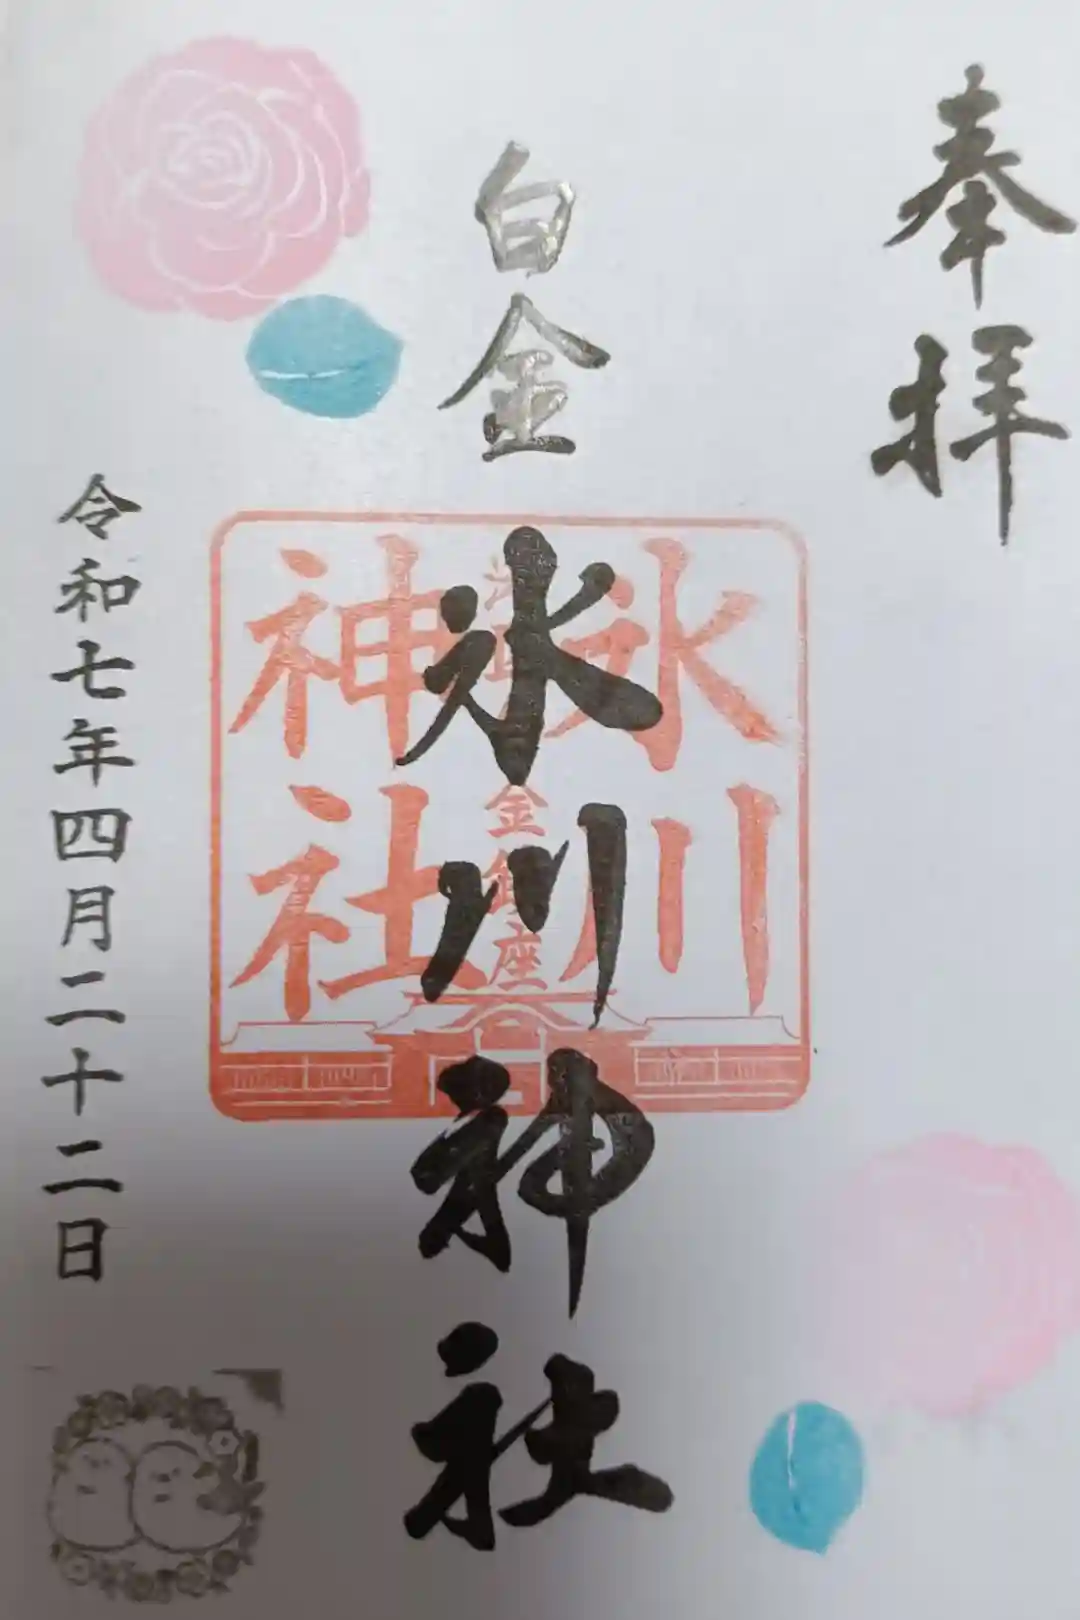 奉拝
白金
氷川神社
氷川
神社
金鎮座
令和七年四月二十二日